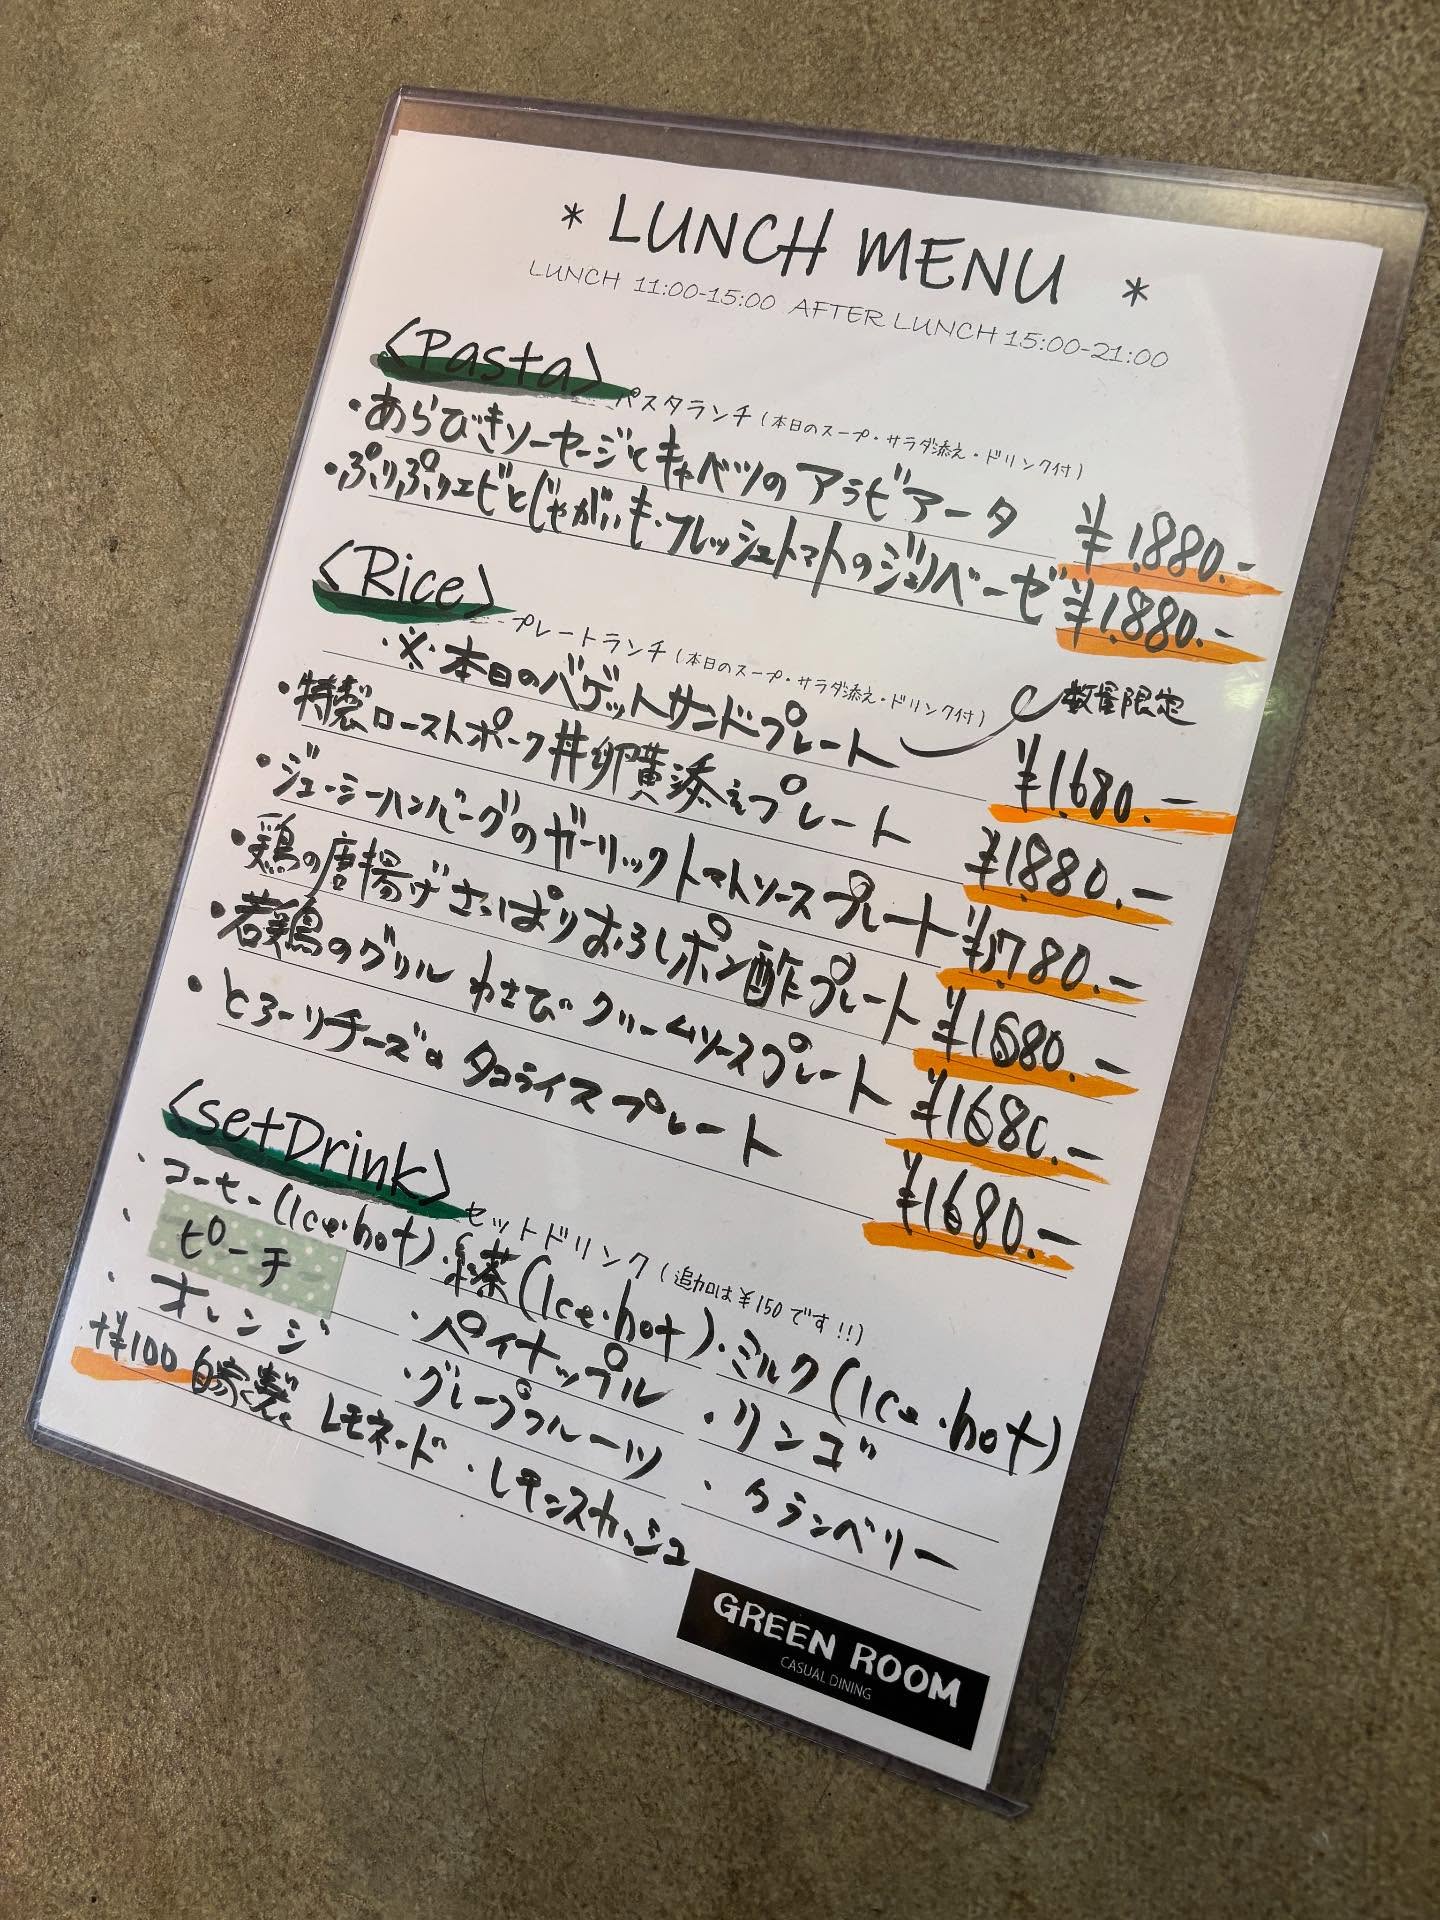 * LUNCH MENU *
LUNCH 11:00-15:00 AFTER LUNCH 15:00-21:00
<Pasta> パスタランチ(本日のスープ・サラダ添え・ドリンク付)
・あらびきソーセージとキャベツのアラビアータ ¥1,880.-
・ぷりぷりエビとじゃがいも・フレッシュトマトのジェノベーゼ ¥1,880.-
<Rice> プレートランチ(本日のスープ・サラダ添え・ドリンク付)
・※・本日のバゲットサンドプレート 数量限定 ¥1,680.-
・特製ローストポーク丼卵黄添えプレート ¥1,880.-
・ジューシーハンバーグのガーリックトマトソースプレート ¥1,780.-
・鶏の唐揚げさっぱりおろしポン酢プレート ¥1,680.-
・若鶏のグリルわさびクリームソースプレート ¥1,680.-
・とろーりチーズのタコライスプレート ¥1,680.-
<setDrink> セットドリンク(追加は¥150です!!)
・コーヒー(Ice・hot)・紅茶(Ice・hot)・ミルク(Ice・hot)
・ピーチ ・パイナップル ・リンゴ
・オレンジ ・グレープフルーツ ・クランベリー
+¥100 自家製レモネード・レモンスカッシュ
GREEN ROOM
CASUAL DINING